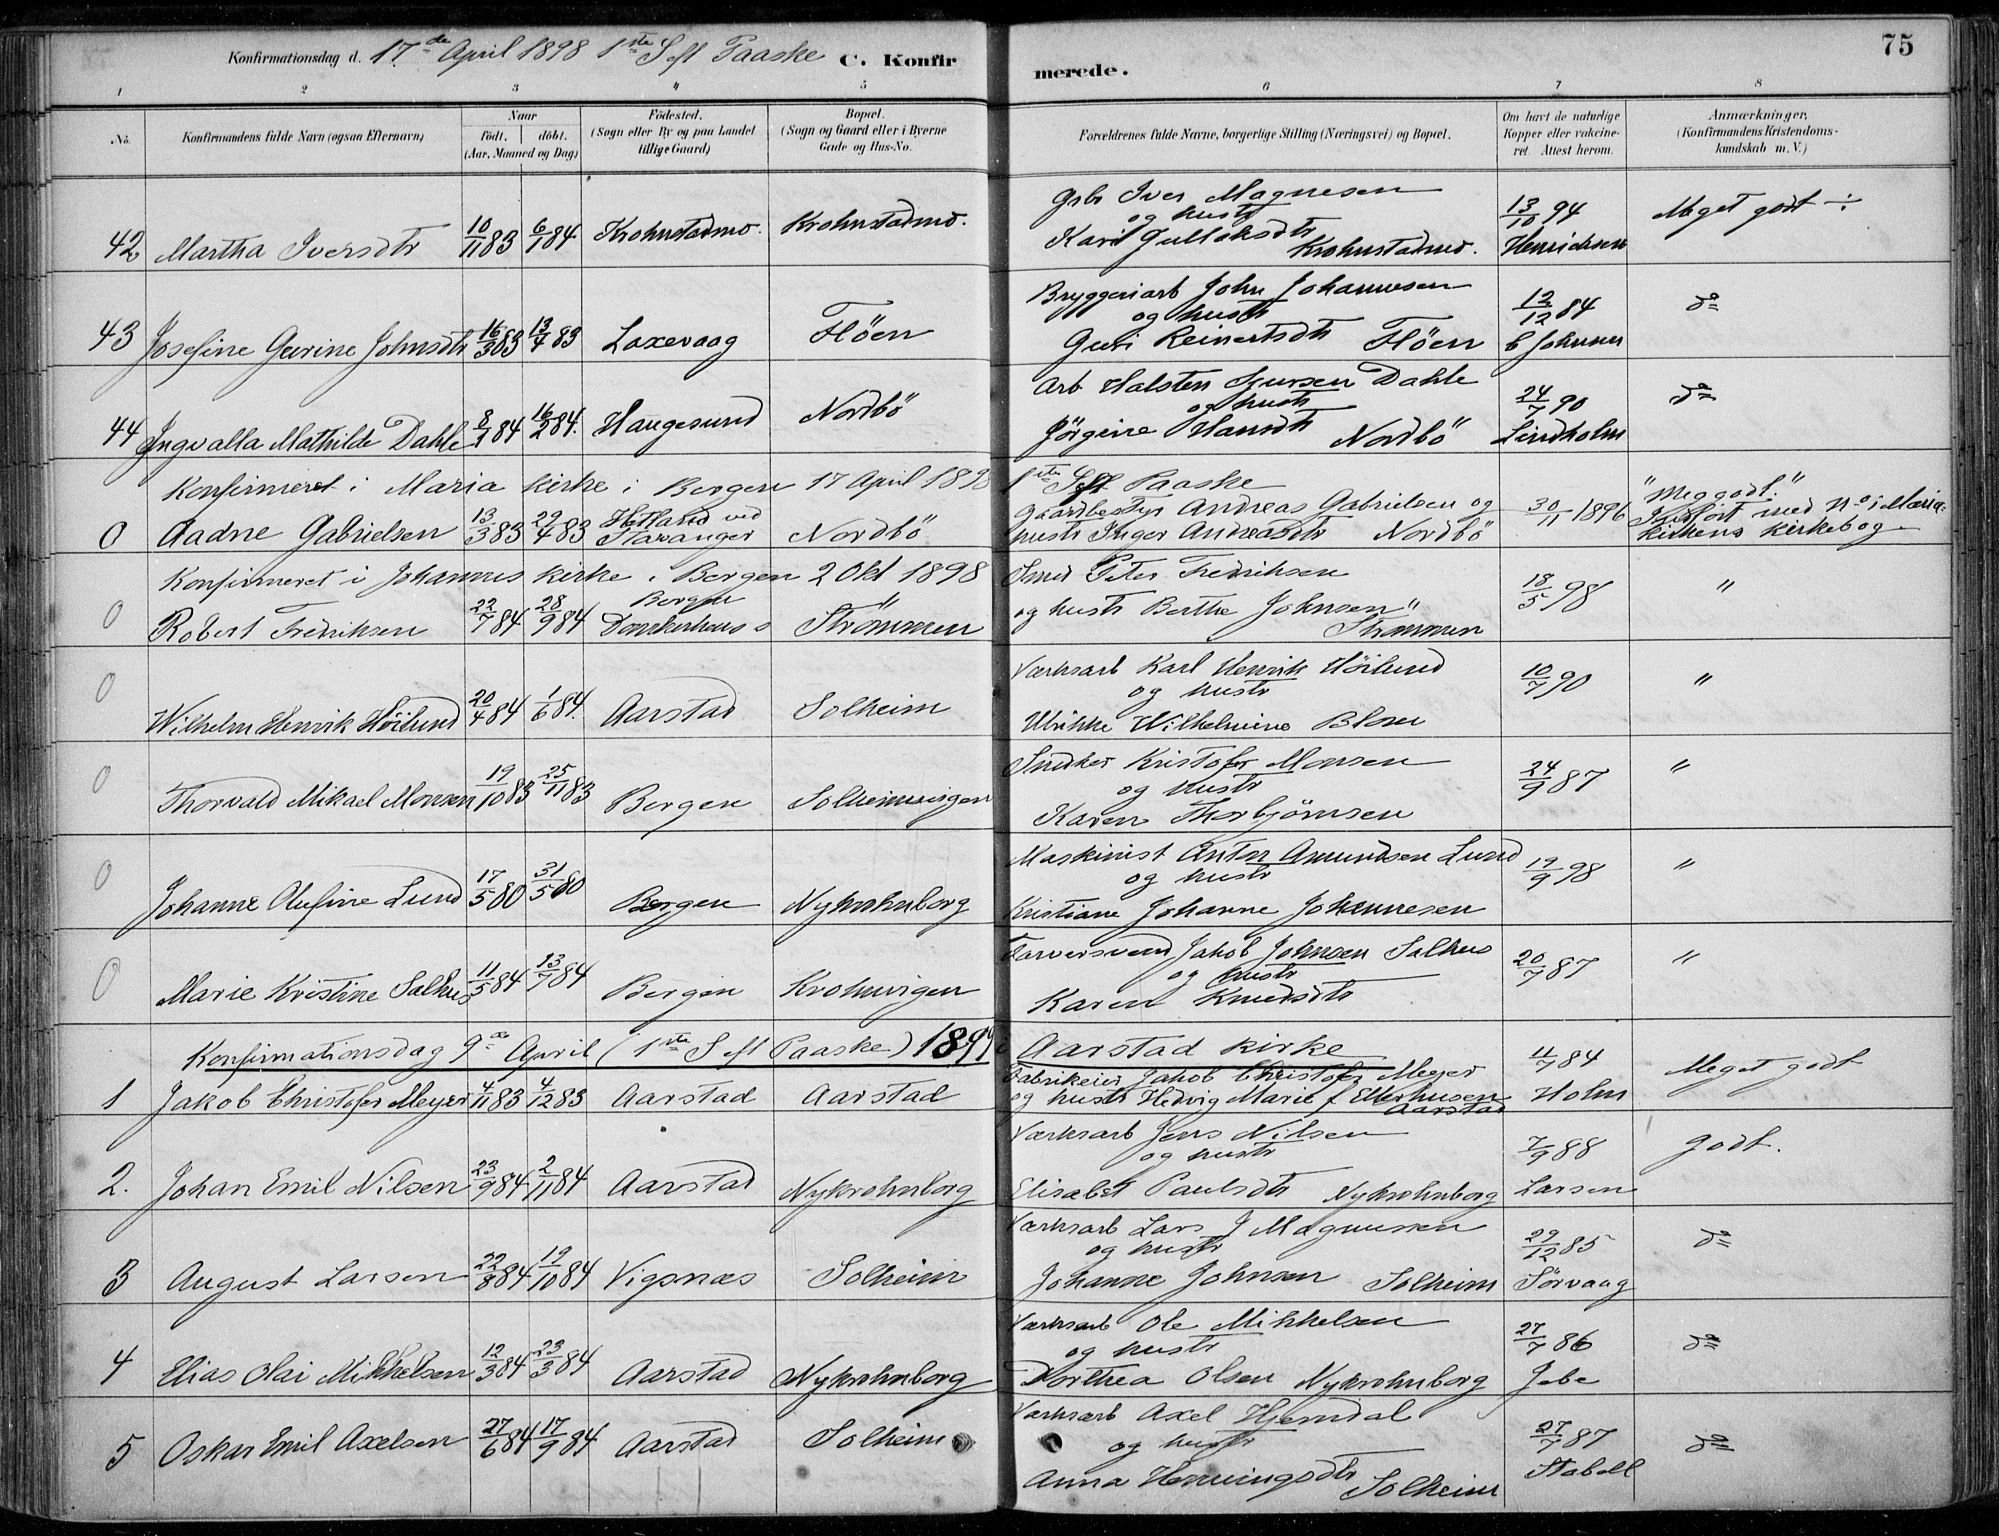 Konfirmationsdag d. 17de April 1898 1ste S eft Paaske C. Konfir
merede. 75
1 2 3 4 5 6 7 8
No. Konfirmandens fulde Navn (ogsaa Efternavn) Naar födt. döbt. (Aar, Maaned og Dag) Födested. (Sogn eller By og paa Landet tillige Gaard) Bopæl. (Sogn og Gaard eller i Byerne Gade og Hus-No. Forældrenes fulde Navne, borgerlige Stilling (Næringsvei) og Bopæl. Om havt de naturlige Kopper eller vakcineret. Attest herom. Anmærkninger. (Konfirmandens Kristendomskundskab m. V.)
Gbr Iver Magnesen
og hustr 13/10 94 Meget godt ÷
42 Martha Iversdtr 10/11 83 6/1 84 Krohnstadmo. Krohnstadmo. Kari Gulleksdtr Krohnstadmo. Henrichsen
Bryggeriarb John Johannesen
og hustr 12/12 84 do
43 Josefine Gurine Johnsdtr 16/3 83 13/4 83 Laxevaag Flöen Guri Reinertsdtr Flöen C Johnsen
Arb Halsten Sjursen Dahle
og hustr 24/7 90 do
44 Ingvalla Mathilde Dahle 8/1 84 16/2 84. Haugesund Nordbö Jörgine Hansdtr Nordbö Lindholm
Konfirmeret i Maria kirke i Bergen 17 April 1898 1ste S eft Paaske
Gaardbestyr Andreas Gabrielsen og "Meg godt."
0 Aadne Gabrielsen 13/3 83 29/4 83 Hetland ved Stavanger Nordbö hustr Inger Andreasdtr Nordbö 30/11 1896 Indfört med No i Mariakirkens kirkebog
Konfirmeret i Johannes kirke i Bergen 2 Okt 1898 Smed Peter Fredriksen
0 Robert Fredriksen 22/7 84 28/9 84 Bergen Strömmen og hustr Berthe Johnsen Strömmen 18/5 98 "
Værksarb Karl Henrik Höilund
og hustr
0 Wilhelm Henrik Höilund 20/4 84 1/6 84. Aarstad Solheim Ulrikke Wilhelmine 10/7 90 "
Snedker Kristofer Monsen
og hustr
0 Thorvald Mikael Monsen 19/10 83 25/11 83 Bergen Solheimsvigen Karen Thorbjörnsen 24/9 87 "
Maskinist Anton Amundsen Lund
og hustr
0 Johanne Olufine Lund 17/5 80 31/5 80 Bergen Nykrohnborg Kristiane Johanne Johannesen 19/9 98 "
Farversvend Jakob Johnsen Salhus
og hustr
0 Marie Kristine Salhus 11/5 84 13/7 84 Bergen Krohnvigen Karen Knudsdtr 20/7 87 "
Konfirmationsdag 9de April (1ste S eft Paaske) 1899 i Aarstad kirke
Fabrikeier Jakob Christofer Meyer 11/7 84 Meget godt
1 Jakob Christofer Meyer 4/11 83 4/12 83 Aarstad Aarstad og hustr Hedvig Marie f Ellerhusen Aarstad Holm
Værksarb Jens Nilsen
og hustr 7/9 88 godt.
2. Johan Emil Nilsen 23/9 84 2/11 84 Aarstad Nykrohnborg Elisabet Paulsdtr Nykrohnborg Larsen
Værksarb Lars J Magnussen
og hustr 29/12 85 do
3 August Larsen 22/8 84 19/10 84 Vigsnæs Solheim Johanne Johnsen Solheim Sörvaag
Værksarb Ole Mikkelsen
og hustr 27/7 86 do
4 Elias Olai Mikkelsen 12/3 84 23/3 84 Aarstad Nykrohnborg Dorthea Olsen Nykrohnborg Jebe
Værksarb Axel Hjemdal
og hustr 27/7 87 do
5 Oskar Emil Axelsen 27/6 84 17/9 84 Aarstad Solheim Anna Henningsdtr Solheim Stabell